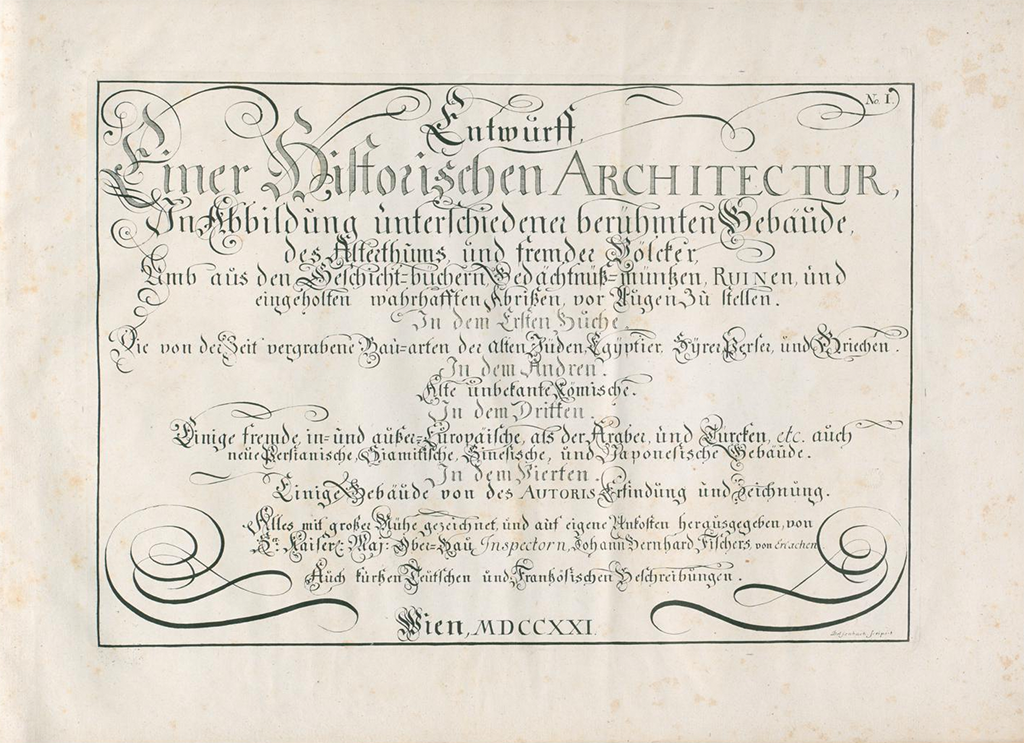 No. I.
Entwurff
Einer Historischen ARCHITECTUR,
In Abbildung unterschiedener berühmten Gebäude,
des Alterthums, und fremder Völcker,
Umb aus den Geschicht-büchern, Gedächtnüß-müntzen, RUINEN, und
eingeholten wahrhafften Abrißen, vor Augen zu stellen.
In dem Ersten Buche.
Die von der Zeit vergrabene Bau-arten der Alten Jüden, Egÿptier, Sÿrer, Perser, und Griechen.
In dem Andren.
Alte unbekante Römische.
In dem Dritten.
Einige fremde, in- und außer-Europäische, als der Araber, und Türcken, etc. auch
neüe Persianische, Siamitische, Sinesische, und Japonesische Gebäude.
In dem Vierten.
Einige Gebäude von des AUTORIS Erfindung und Zeichnung.
Alles mit großer Mühe gezeichnet, und auf eigene Unkosten herausgegeben, von
Sr. Kaiserl: Maj: Ober-Bau Inspectorn, Johann Bernhard Fischers, von Erlachen
Auch kurtzen Teütschen und Frantzösischen Beschreibungen.
Wien, MDCCXXI.
sculpsit